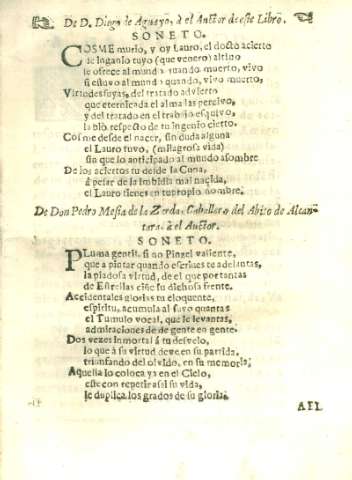 De D. Diego de Aguayo, à el Auctor de este Libro.
SONETO.
COSME murio, y oy Lauro, el docto acierto
de Ingenio tuyo (que venero) altivo
le ofrece al mundo quando muerto, vivo
si estuvo al mundo quando, vivo, muerto.
Virtudes suyas, del tratado advierto
que eterniçada el alma las percivo,
y del tratado en el trabajo esquivo,
la bio, respecto de tu ingenio cierto.
Cosme desde el nacer, sin duda alguna
el Lauro tuvo, (milagrosa vida)
sin que lo anticipado al mundo asombre
De los aciertos tu desde la Cuna,
à pesar de la imbidia mal nacida,
el Lauro tienes en tu propio nombre.
De Don Pedro Mesia de la Zerda, Caballero del Abito de Alcan-
tara, à el Auctor.
SONETO.
PLuma gentil, si no Pinzel valiente,
que a pintar quando escriues te adelantas,
la piadosa virtud, de el que portantas
de Estrellas ciñe su dichosa frente.
Accidentales glorias tu eloquente,
espiritu, acumula al suyo quantas
el Tumulo vocal, que le levantas,
admiraciones dè de gente en gente.
Dos vezes inmortal à tu desvelo,
lo que à su virtud deve en su partida,
triunfando del olvido, en su memoria;
Aquella lo coloca ya en el Cielo,
este con repetir asi su vida,
le duplica los grados de su gloria.
AEL